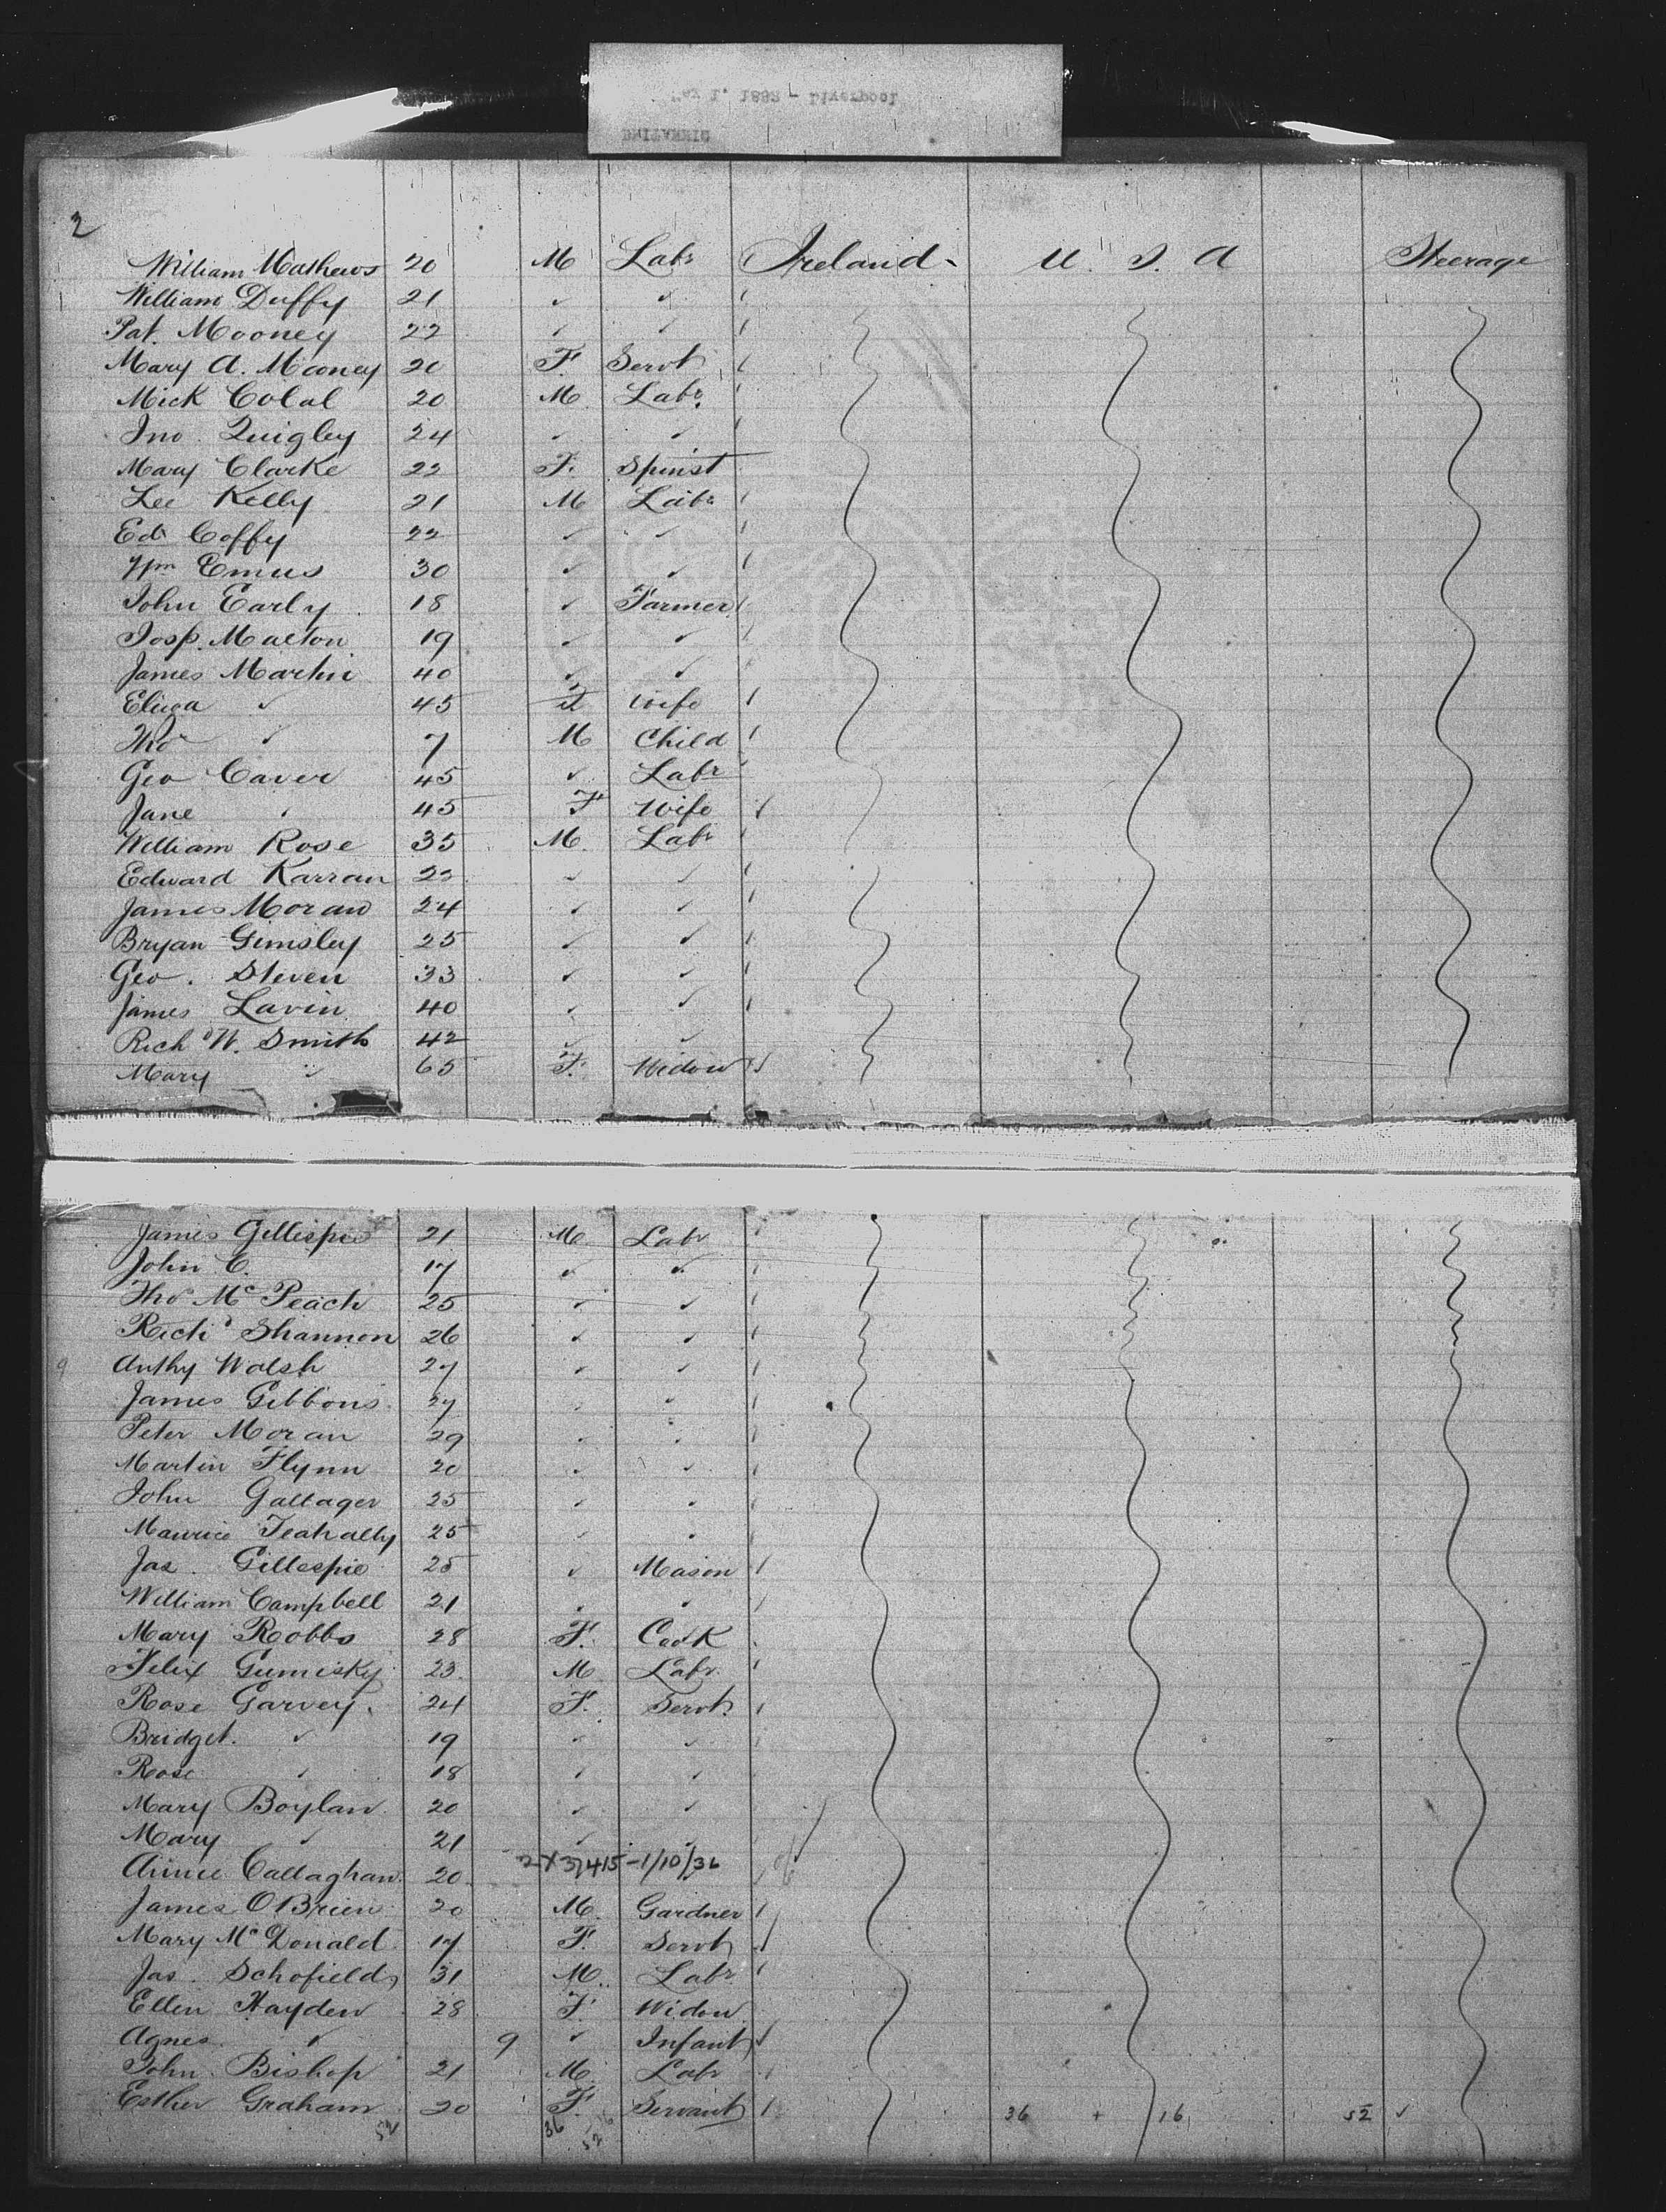 May 1. 1882 - Liverpool
BRITANNIC
2
William Mathews 20 M Labr Ireland U. S. A Steerage
William Duffy 21 ✓ ✓
Pat. Mooney 22 ✓ ✓
Mary A. Mooney 20 F. Servt
Mick Colal 20 M Labr
Jno. Quigley 24 ✓ ✓
Mary Clarke 22 F. Spinst
Lee Kelly 21 M Labr
Edd Coffy 22 ✓ ✓
Wm Emus 30 ✓ ✓
John Early 18 ✓ Farmer
Josp. Malton 19 ✓ ✓
James Martin 40 ✓ ✓
Eliza ✓ 45 F Wife
Thos ✓ 7 M Child
Geo Caver 45 ✓ Labr
Jane ✓ 45 F Wife
William Rose 35 M. Labr
Edward Karran 22 ✓ ✓
James Moran 24 ✓ ✓
Bryan Gimsley 25 ✓ ✓
Geo. Steven 33 ✓ ✓
James Lavin 40 ✓ ✓
Richd W. Smith 42 ✓ ✓
Mary ✓ 65 F. Widow
James Gillespie 21 M. Labr
John C. 17 ✓ ✓
Thos Mc Peach 25 ✓ ✓
Richd Shannon 26 ✓ ✓
Anthy Walsh 27 ✓ ✓
James Gibbons 27 ✓ ✓
Peter Moran 29 ✓ ✓
Martin Flynn 20 ✓ ✓
John Gallager 25 ✓ ✓
Maurice 25 ✓ ✓
Jas. Gillespie 25 ✓ Mason
William Campbell 21 ✓ ✓
Mary Robbs 28 F. Cook
Felix Gumisky 23. M Labr
Rose Garvey. 24 F. Servt
Bridget. ✓ 19 ✓ ✓
Rose ✓ 18 ✓ ✓
Mary Boylan 20 ✓ ✓
Mary ✓ 21 ✓ ✓
Annie Callaghan 20 2X37415-1/10/36
James OBrien 20 M. Gardner
Mary Mc Donald 17 F. Servt
Jas. Schofield 31 M. Labr
Ellen Hayden 28 F. Widow
Agnes ✓ 9 ✓ Infant
John Bishop 21 M. Labr
Esther Graham 20 F. Servant
52 36 16 52 36 + 16 52 ✓